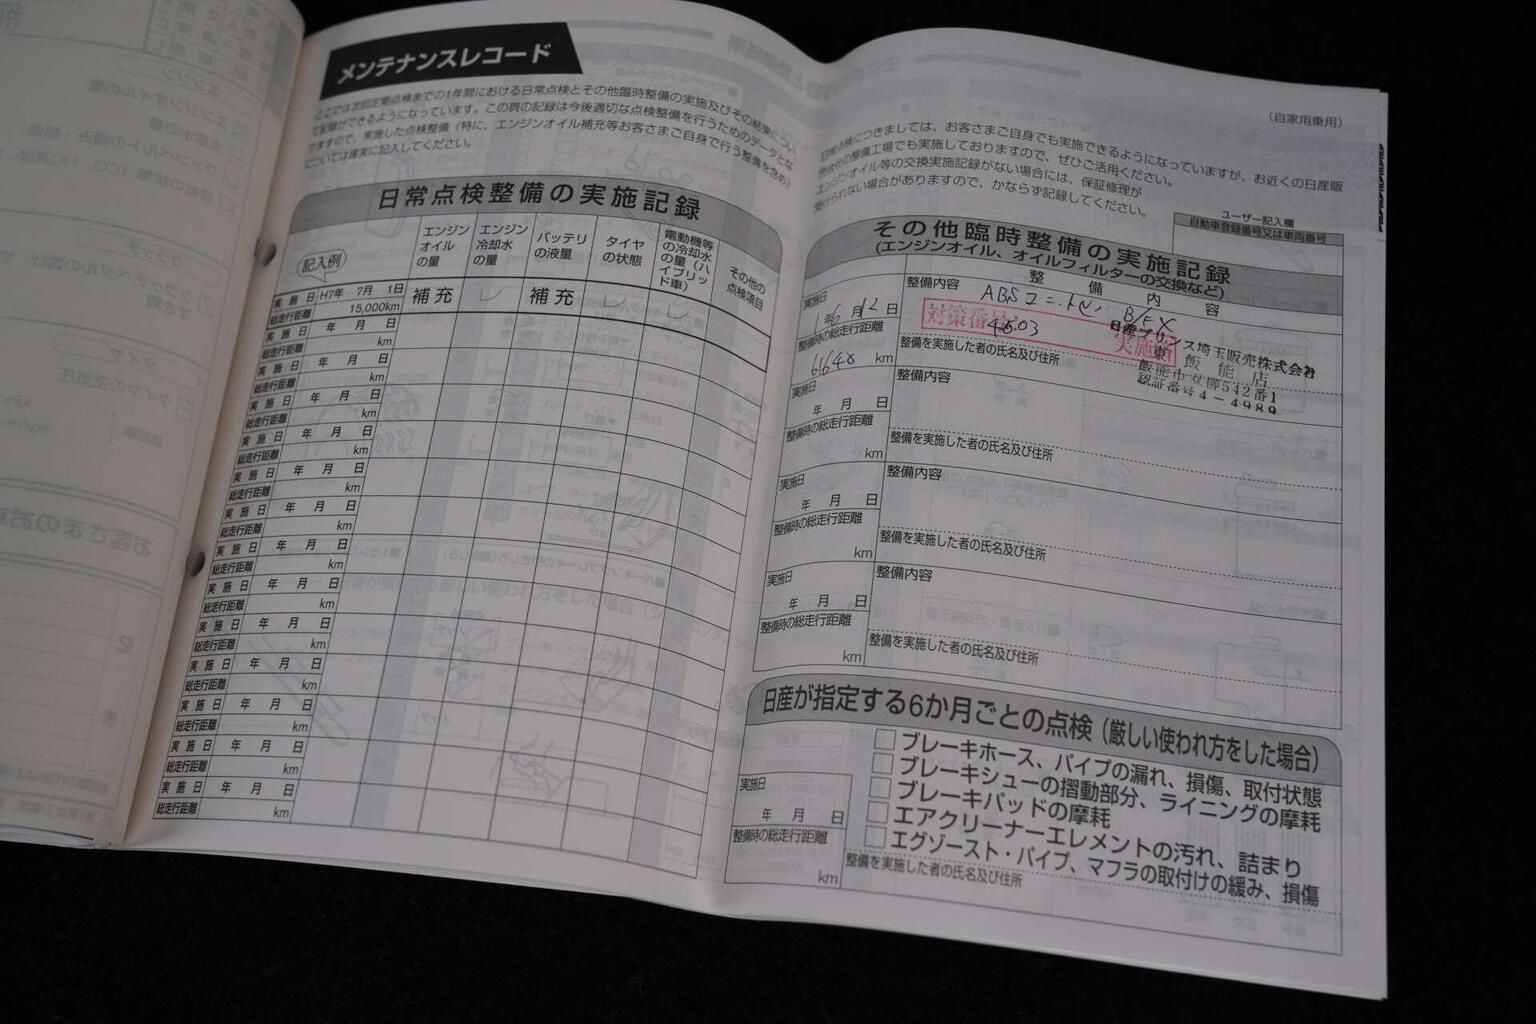 メンテナンスレコード
ここでは次回定期点検までの1年間における日常点検とその他臨時整備の実施及びその結果につい
て記録ができるようになっています。この頁の記録は今後適切な点検整備を行うためのデータとな
りますので、実施した点検整備(特に、エンジンオイル補充等お客さまご自身で行う整備を含め)
については確実に記入してください。
日常点検整備の実施記録
記入例
エンジンオイルの量
エンジン冷却水の量
バッテリの液量
タイヤの状態
電動機等の冷却水の量(ハイブリッド車)
その他の点検項目
実施日 H7年 7月 1日
総走行距離 15,000km
補充
補充
実施日 年 月 日
総走行距離 km
実施日 年 月 日
総走行距離 km
実施日 年 月 日
総走行距離 km
実施日 年 月 日
総走行距離 km
実施日 年 月 日
総走行距離 km
実施日 年 月 日
総走行距離 km
実施日 年 月 日
総走行距離 km
実施日 年 月 日
総走行距離 km
実施日 年 月 日
総走行距離 km
実施日 年 月 日
総走行距離 km
実施日 年 月 日
総走行距離 km
実施日 年 月 日
総走行距離 km
実施日 年 月 日
総走行距離 km
(自家用乗用)
日常点検につきましては、お客さまご自身でも実施できるようになっていますが、お近くの日産販
売会社の整備工場でも実施しておりますので、ぜひご活用ください。
エンジンオイル等の交換実施記録がない場合には、保証修理が
受けられない場合がありますので、かならず記録してください。
ユーザー記入欄
自動車登録番号又は車両番号
その他臨時整備の実施記録
(エンジンオイル、オイルフィルターの交換など)
整備内容
実施日
年 月12日
整備時の総走行距離
km
整備内容
ABSユニット
対策番号:
4503
実施済
日産プリンス埼玉販売株式会社
飯能店
飯能市双柳542番1
認証番号4-4989
整備を実施した者の氏名及び住所
実施日
年 月 日
整備時の総走行距離
km
整備内容
整備を実施した者の氏名及び住所
実施日
年 月 日
整備時の総走行距離
km
整備内容
整備を実施した者の氏名及び住所
実施日
年 月 日
整備時の総走行距離
km
整備内容
整備を実施した者の氏名及び住所
日産が指定する6か月ごとの点検(厳しい使われ方をした場合)
実施日
年 月 日
整備時の総走行距離
km
ブレーキホース、パイプの漏れ、損傷、取付状態
ブレーキシューの摺動部分、ライニングの摩耗
ブレーキパッドの摩耗
エアクリーナーエレメントの汚れ、詰まり
エグゾースト・パイプ、マフラの取付けの緩み、損傷
整備を実施した者の氏名及び住所